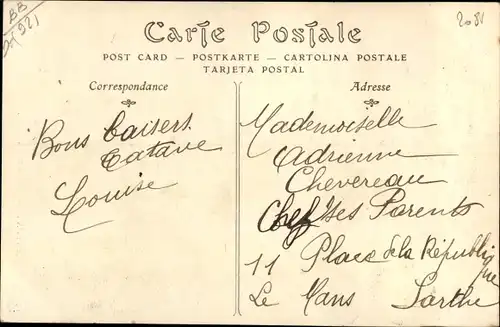 BB
2081
Carte Postale
POST CARD — POSTKARTE — CARTOLINA POSTALE
TARJETA POSTAL
Correspondance
Adresse
Bons baisers
Tatave
Louise
Mademoiselle
Adrienne
Chevereau
Chez Ses Parents
11 Place de la République
Le Mans Sarthe